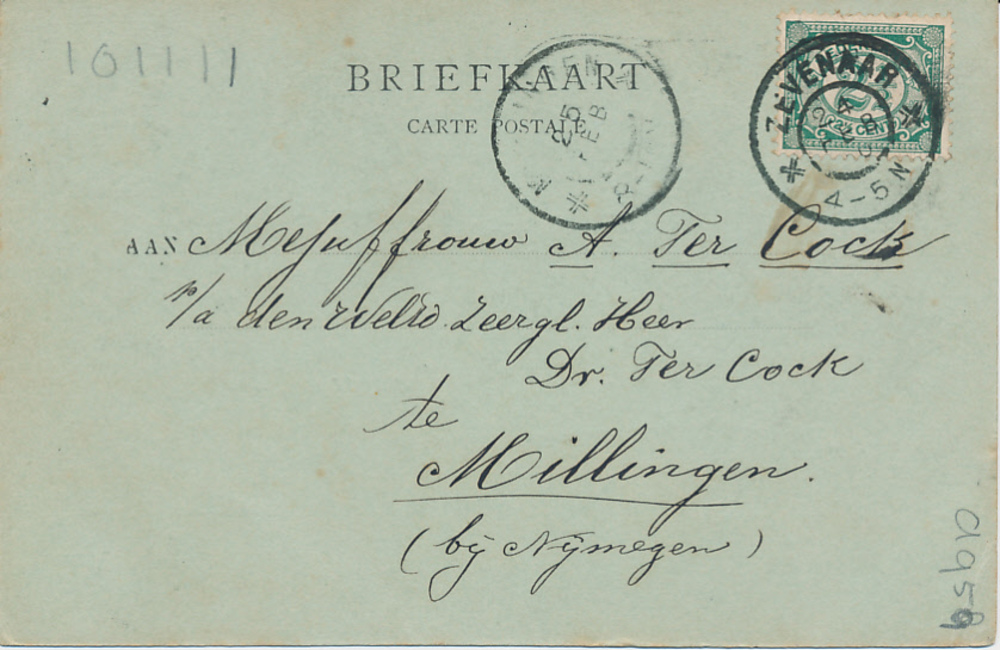 101111
BRIEFKAART
CARTE POSTALE
ZEVENAAR
4-5N
25 FEB
AAN Mejuffrouw A. Ter Cock
p/a den WelEd. Zeergl. Heer
Dr. Ter Cock
te
Millingen.
(bÿ Nÿmegen)